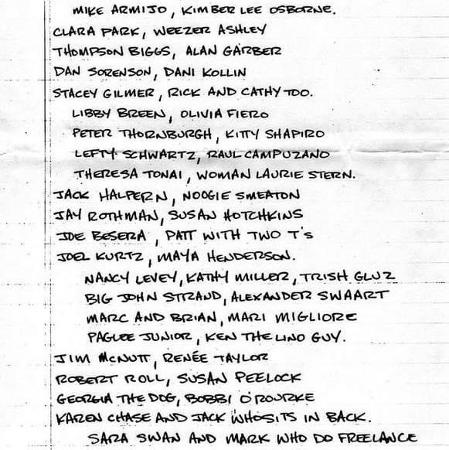 MIKE ARMIJO, KIMBER LEE OSBORNE.
CLARA PARK, WEEZER ASHLEY
THOMPSON BIGGS, ALAN GARBER
DAN SORENSON, DANI KOLLIN
STACEY GILMER, RICK AND CATHY TOO.
LIBBY BREEN, OLIVIA FIERO
PETER THORNBURGH, KITTY SHAPIRO
LEFTY SCHWARTZ, RAUL CAMPUZANO
THERESA TONAI, WOMAN LAURIE STERN.
JACK HALPERN, NOOGIE SMEATON
JAY ROTHMAN, SUSAN HOTCHKINS
JOE BESERA, PATT WITH TWO T'S
JOEL KURTZ, MAYA HENDERSON.
NANCY LEVEY, KATHY MILLER, TRISH GLUZ
BIG JOHN STRAND, ALEXANDER SWAART
MARC AND BRIAN, MARI MIGLIORE
PAGLEE JUNIOR, KEN THE LINO GUY.
JIM McNUTT, RENÉE TAYLOR
ROBERT ROLL, SUSAN PEELOCK
GEORGIA THE DOG, BOBBI O'ROURKE
KAREN CHASE AND JACK WHOSITS IN BACK.
SARA SWAN AND MARK WHO DO FREELANCE